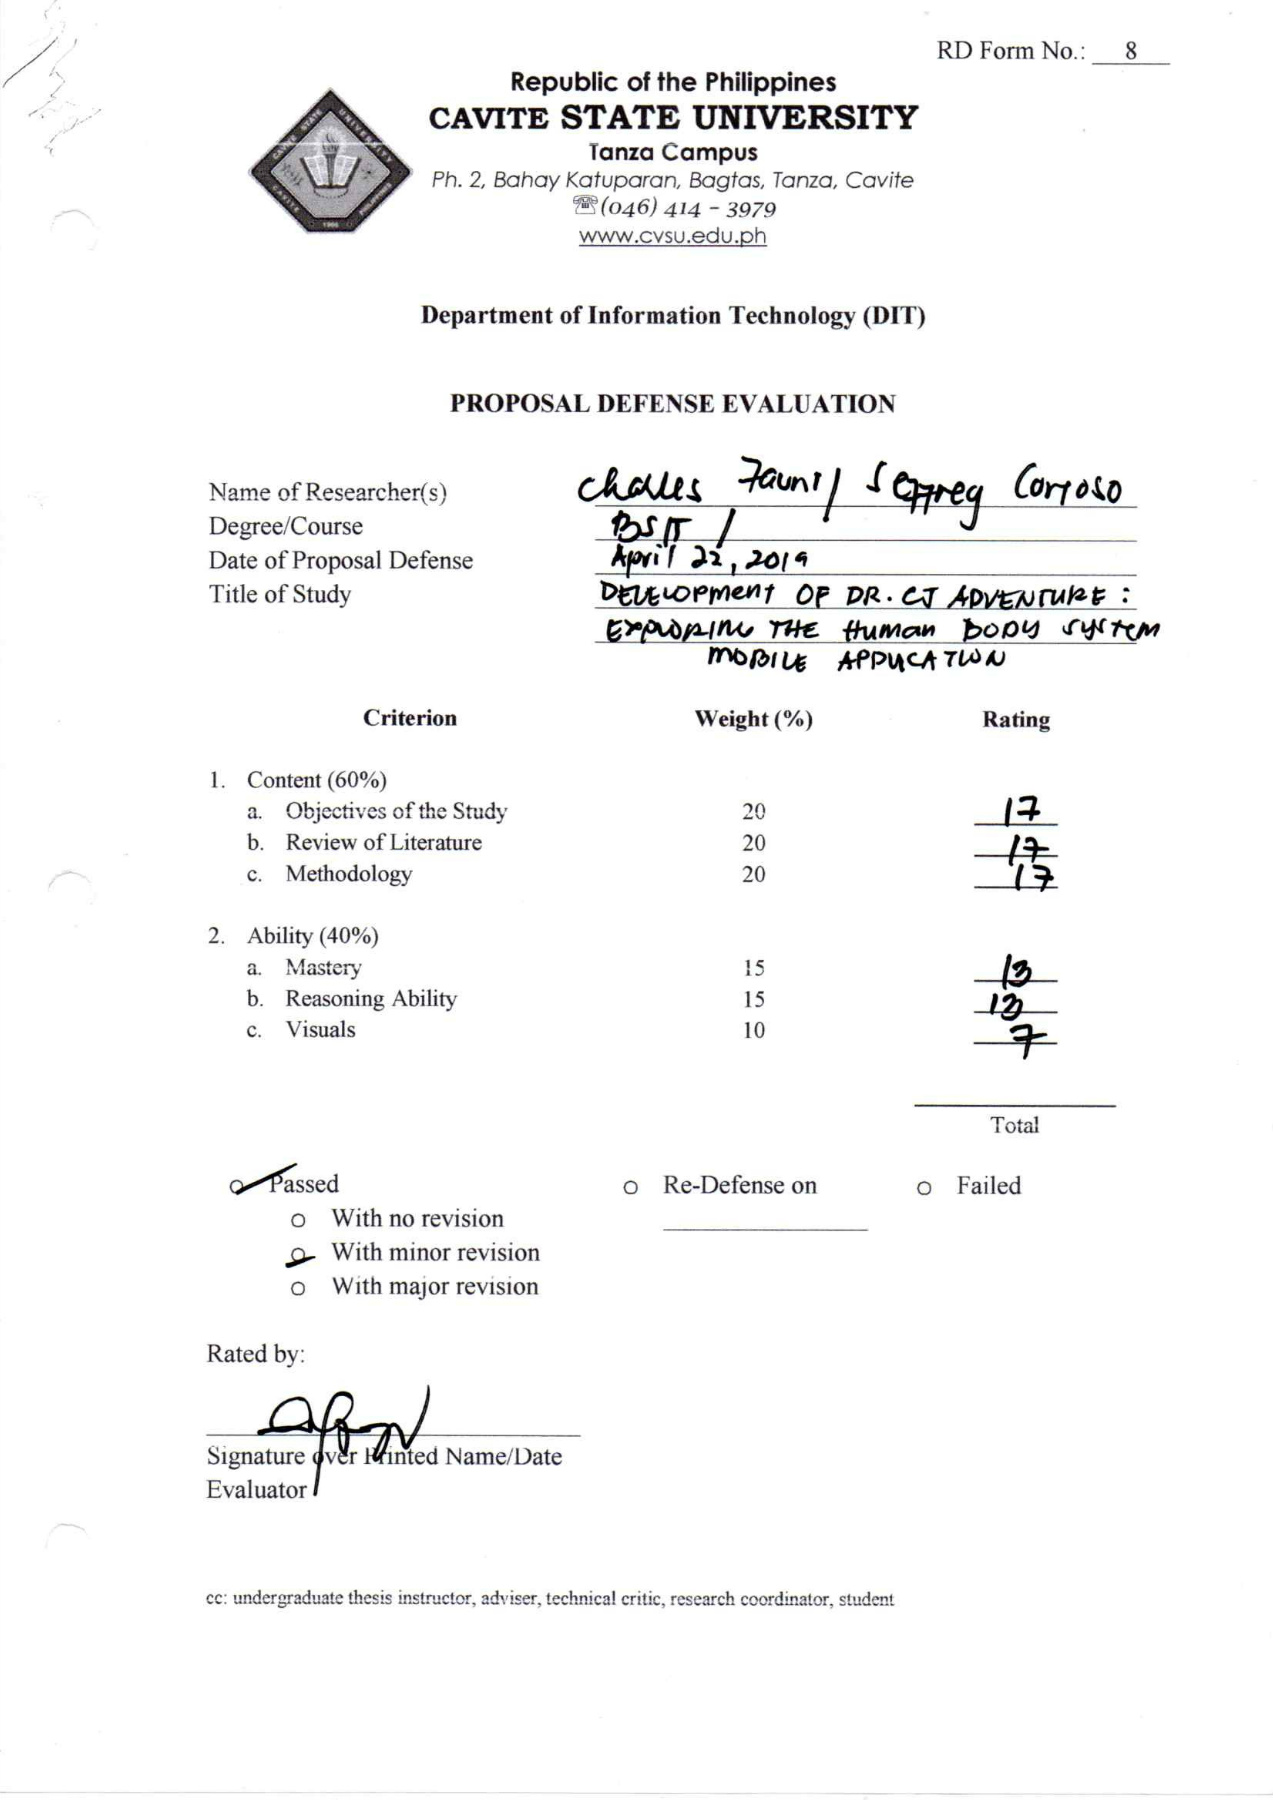 RD Form No.: 8
Republic of the Philippines
CAVITE STATE UNIVERSITY
Tanza Campus
Ph. 2, Bahay Katuparan, Bagtas, Tanza, Cavite
☏(046) 414 - 3979
www.cvsu.edu.ph
CAVITE STATE UNIVERSITY
CAVITE 1906 PHILIPPINES
Department of Information Technology (DIT)
PROPOSAL DEFENSE EVALUATION
Name of Researcher(s) Charles / Jeffrey Corroso
Degree/Course BSIT /
Date of Proposal Defense April 22, 2019
Title of Study DEVELOPMENT OF DR. CJ ADVENTURE :
EXPLORING THE HUMAN BODY SYSTEM
MOBILE APPLICATION
Criterion Weight (%) Rating
1. Content (60%)
a. Objectives of the Study 20 17
b. Review of Literature 20 17
c. Methodology 20 17
2. Ability (40%)
a. Mastery 15 13
b. Reasoning Ability 15 13
c. Visuals 10 7
Total
Passed ○ Re-Defense on ○ Failed
○ With no revision
With minor revision
○ With major revision
Rated by:
Signature over Printed Name/Date
Evaluator
cc: undergraduate thesis instructor, adviser, technical critic, research coordinator, student